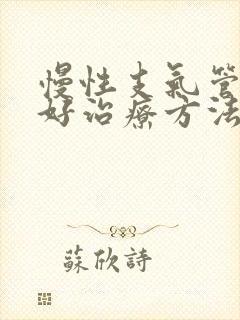 慢性支氣管
好治療方法
蘇欣詩